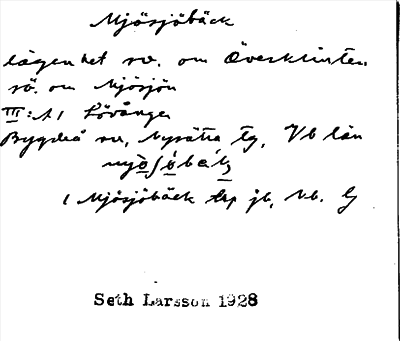 Mjösjöbäck
lägenhet sv. om Överklinten
sö. om Mjösjön
III:A1 Lövånger
Bygdeå sn, Nysätra tg, Vb län
( Mjösjöbäck
Seth Larsson 1928